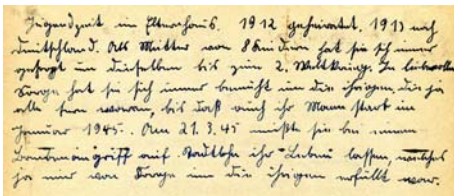 Jugendzeit im Elternhaus. 1912 geheiratet. 1913 nach
Deutschland. Als Mutter von 8 Kindern hat sie sich immer
gesorgt um dieselben bis zum 2. Weltkrieg. In liebevoller
Sorge hat sie sich immer bemüht um die ihrigen, die ja
alle fern waren, bis daß auch ihr Mann starb im
Januar 1945. Am 21.3.45 mußte sie bei einem
Bombenangriff auf Stadtlohn ihr Leben lassen, welches
ja nur von Sorge um die ihrigen erfüllt war.